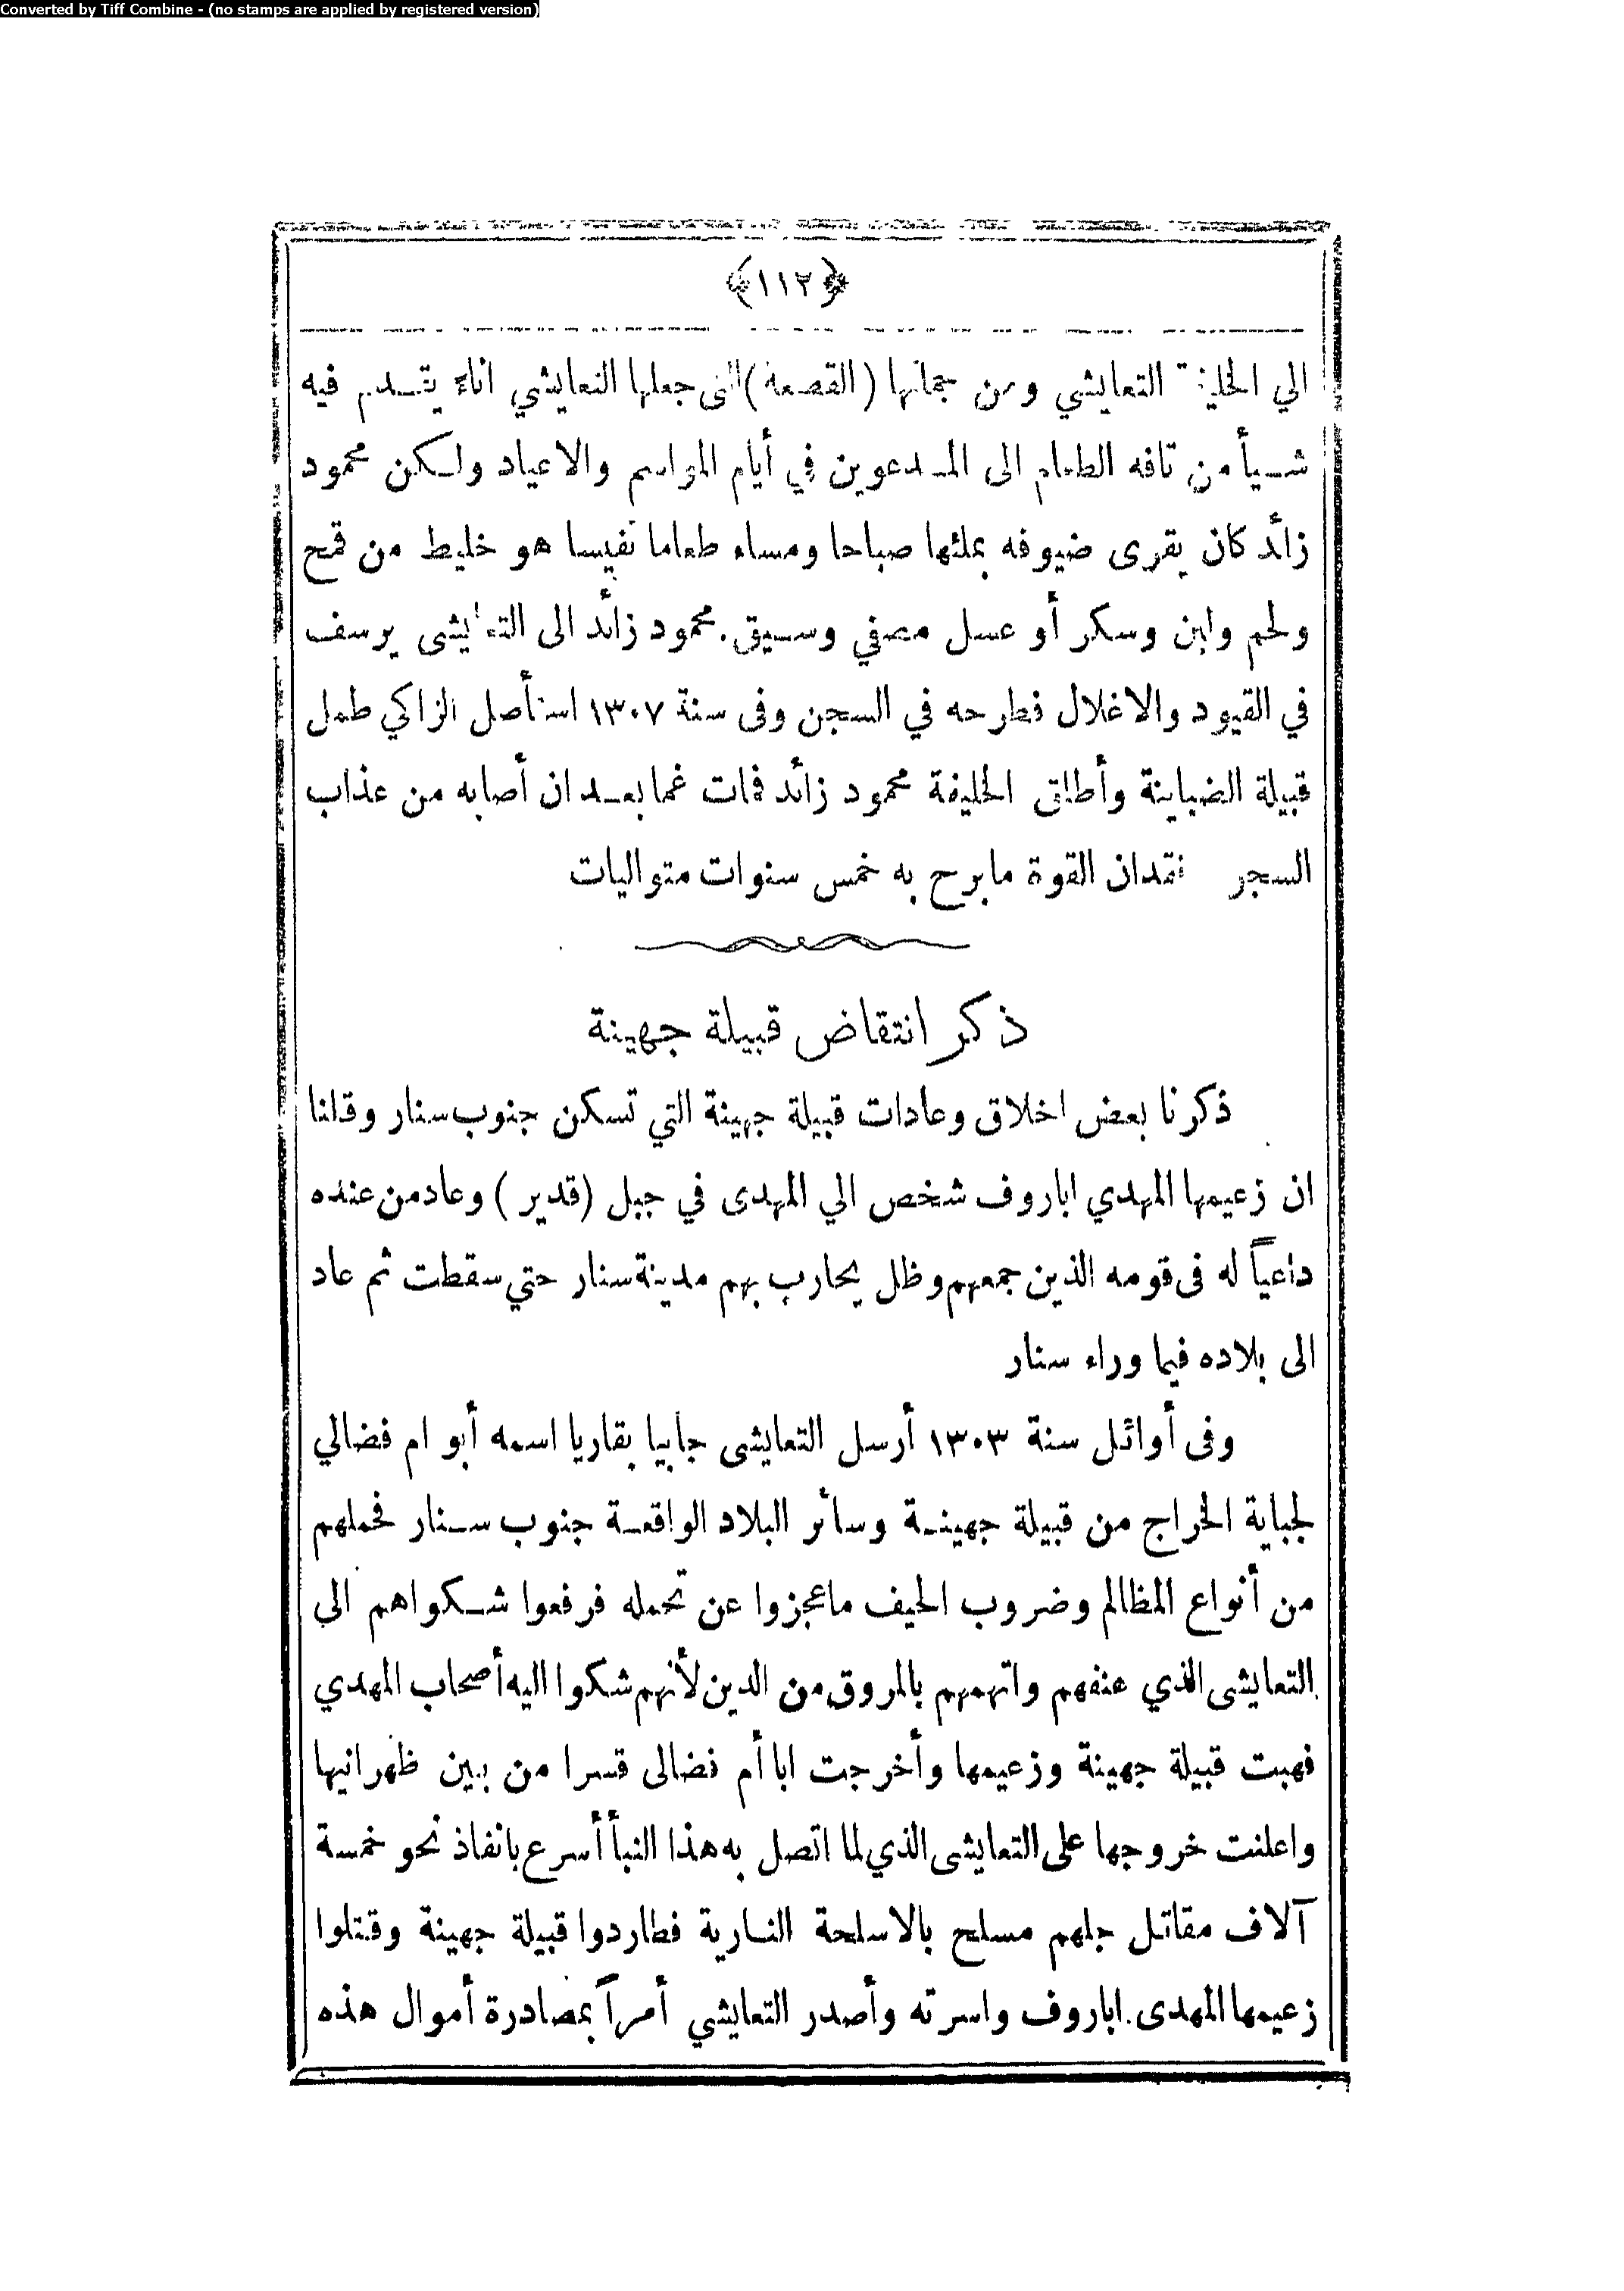 Converted by Tiff Combine - (no stamps are applied by registered version)
﴿١١٢﴾
الي الخليفة التعايشي ومن جملتها (القصعة) التى جعلها التعايشي اناءً يقدم فيه
شيأ من تافه الطعام الى المدعوين في أيام المواسم والاعياد ولكن محمود
زائد كان يقرى ضيوفه بملئها صباحا ومساء طعاما نفيسا هو خليط من قمح
ولحم ولبن وسكر أو عسل مصفي وسيق محمود زائد الى التعايشى يرسف
في القيود والاغلال فطرحه في السجن وفى سنة ١٣٠٧ استأصل الزاكي طمل
قبيلة الضباينة وأطلق الخليفة محمود زائد فمات غما بعد ان أصابه من عذاب
السجن فقدان القوة مابرح به خمس سنوات متواليات
ذكر انتقاض قبيلة جهينة
ذكرنا بعض اخلاق وعادات قبيلة جهينة التي تسكن جنوب سنار وقلنا
ان زعيمها المهدي اباروف شخص الي المهدى في جبل (قدير) وعاد من عنده
داعياً له فى قومه الذين جمعهم وظل يحارب بهم مدينة سنار حتي سقطت ثم عاد
الى بلاده فيما وراء سنار
وفى أوائل سنة ١٣٠٣ أرسل التعايشى جابيا بقاريا اسمه أبو ام فضالي
لجباية الخراج من قبيلة جهينة وسائر البلاد الواقعة جنوب سنار فحملهم
من أنواع المظالم وضروب الحيف ماعجزوا عن تحمله فرفعوا شكواهم الي
التعايشى الذي عنفهم واتهمهم بالمروق من الدين لأنهم شكوا اليه أصحاب المهدي
فهبت قبيلة جهينة وزعيمها وأخرجت ابا أم فضالى قسرا من بين ظهرانيها
واعلنت خروجها على التعايشى الذي لما اتصل به هذا النبأ أسرع بانفاذ نحو خمسة
آلاف مقاتل جلهم مسلح بالاسلحة النارية فطاردوا قبيلة جهينة وقتلوا
زعيمها المهدى اباروف واسرته وأصدر التعايشي أمراً بمصادرة أموال هذه